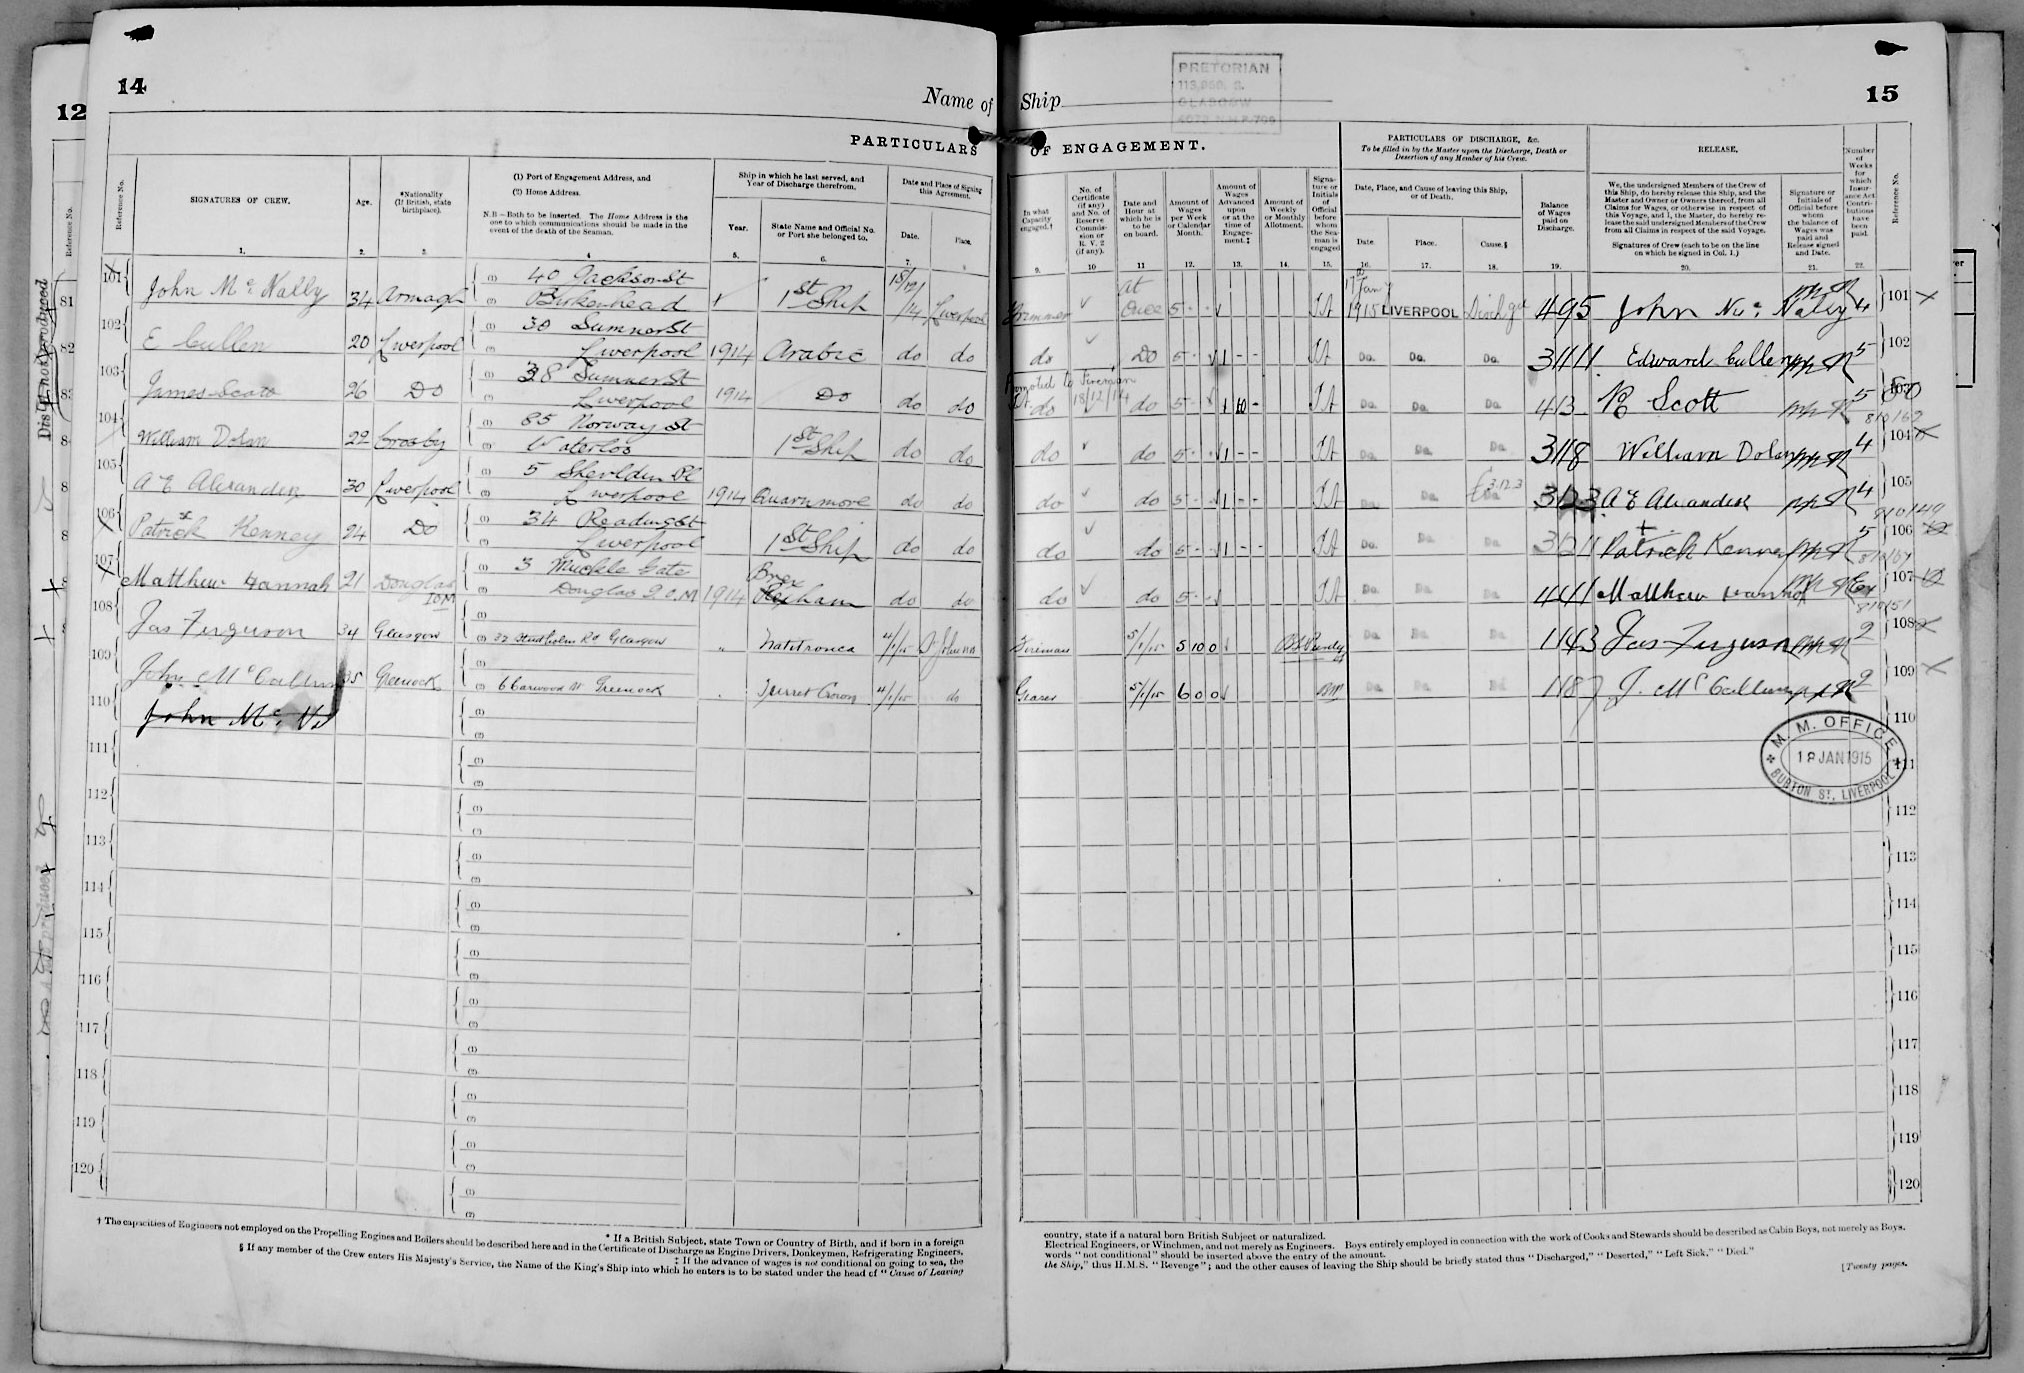 14
12
Name of Ship
PRETORIAN
GLASGOW
15
PARTICULARS OF ENGAGEMENT.
PARTICULARS OF DISCHARGE, &c.
To be filled in by the Master upon the Discharge, Death or
Desertion of any Member of his Crew.
RELEASE.
Reference No.
SIGNATURES OF CREW.
Age.
*Nationality
(If British, state
birthplace).
(1) Port of Engagement Address, and
(2) Home Address.
N.B.—Both to be inserted. The Home Address is the
one to which communications should be made in the
event of the death of the Seaman.
Ship in which he last served, and
Year of Discharge therefrom.
Year.
State Name and Official No.
or Port she belonged to.
Date and Place of Signing
this Agreement.
Date.
Place.
In what
Capacity
engaged.†
No. of
Certificate
(if any)
and No. of
Reserve
Commis-
sion or
R. V. 2
(if any).
Date and
Hour at
which he is
to be
on board.
Amount of
Wages
per Week
or Calendar
Month.
Amount of
Wages
Advanced
upon
or at the
time of
Engage-
ment.‡
Amount of
Weekly
or Monthly
Allotment.
Signa-
ture or
Initials
of
Official
before
whom
the Sea-
man is
engaged
Date, Place, and Cause of leaving this Ship,
or of Death.
Date.
Place.
Cause.§
Balance
of Wages
paid on
Discharge.
We, the undersigned Members of the Crew of
this Ship, do hereby release this Ship, and the
Master and Owner or Owners thereof, from all
Claims for Wages, or otherwise in respect of
this Voyage, and I, the Master, do hereby re-
lease the said undersigned Members of the Crew
from all Claims in respect of the said Voyage.
Signatures of Crew (each to be on the line
on which he signed in Col. 1.)
Signature or
Initials of
Official before
whom
the balance of
Wages was
paid and
Release signed
and Date.
Number
of
Weeks
for
which
Insur-
ance Act
Contri-
butions
have
been
paid.
Reference No.
1. 2. 3. 4 5. 6. 7. 9. 10 11 12. 13. 14. 15. 16. 17. 18. 19. 20. 21. 22.
101 John Mc Nally 34 Armagh 40 Jackson St
Birkenhead 1st Ship 15/12/14 Liverpool Trimmer At Once 5 17 Jany 1915 LIVERPOOL Dischgd 4 9 5 John Mc Nally 4 101
102 E Cullen 20 Liverpool 30 Sumner St
Liverpool 1914 Arabic do do do Do 5 1 Do. Do. Do. 3 11 11 Edward Cullen 5 102
103 James Scott 26 Do 38 Sumner St
Liverpool 1914 Do do do Promoted to Fireman 18/12/14 do do 5 1 10 Do. Do. Do. 4 13 Scott 5 103
104 William Dolan 22 Crosby 85 Norway St
Waterloo 1st Ship do do do do 5 1 Do. Do. Do. 3 11 8 William Dolan 4 104
105 A E Alexander 30 Liverpool 5 Sheridan Pl
Liverpool 1914 Quarnmore do do do do 5 1 Do. Do. 3.12.3 3 12 3 A E Alexander 4 105
106 Patrick Kenney 24 Do 34 Reading St
Liverpool 1st Ship do do do do 5 1 Do. Do. Do. Patrick Kenney 5 106
107 Matthew Hannah 21 Douglas IOM 3 Muckle Gate
Douglas I.O.M 1914 do do do do 5 Do. Do. Do. 4 4 1 Matthew Hannah 107
108 Jas Ferguson 34 Glasgow Glasgow 4/1/15 St John NB Fireman 5/1/15 5 10 0 Do. Do. Do. 1 14 3 Jas Ferguson 2 108
109 John McCallum 35 Greenock Greenock Turret Crown 4/1/15 do Greaser 5/1/15 6 0 0 Do. Do. Do. J. McCallum 2 109
110 John Mc. 110
M. M. OFFICE
18 JAN 1915
BURTON ST. LIVERPOOL
111 111
112 112
113 113
114 114
115 115
116 116
117 117
118 118
119 119
120 120
* If a British Subject, state Town or Country of Birth, and if born in a foreign country, state if a natural born British Subject or naturalized.
† The capacities of Engineers not employed on the Propelling Engines and Boilers should be described here and in the Certificate of Discharge as Engine Drivers, Donkeymen, Refrigerating Engineers, Electrical Engineers, or Winchmen, and not merely as Engineers. Boys entirely employed in connection with the work of Cooks and Stewards should be described as Cabin Boys, not merely as Boys.
‡ If the advance of wages is not conditional on going to sea, the words "not conditional" should be inserted above the entry of the amount.
§ If any member of the Crew enters His Majesty's Service, the Name of the King's Ship into which he enters is to be stated under the head of "Cause of Leaving the Ship," thus H.M.S. "Revenge"; and the other causes of leaving the Ship should be briefly stated thus "Discharged," "Deserted," "Left Sick," "Died."
[Twenty pages.